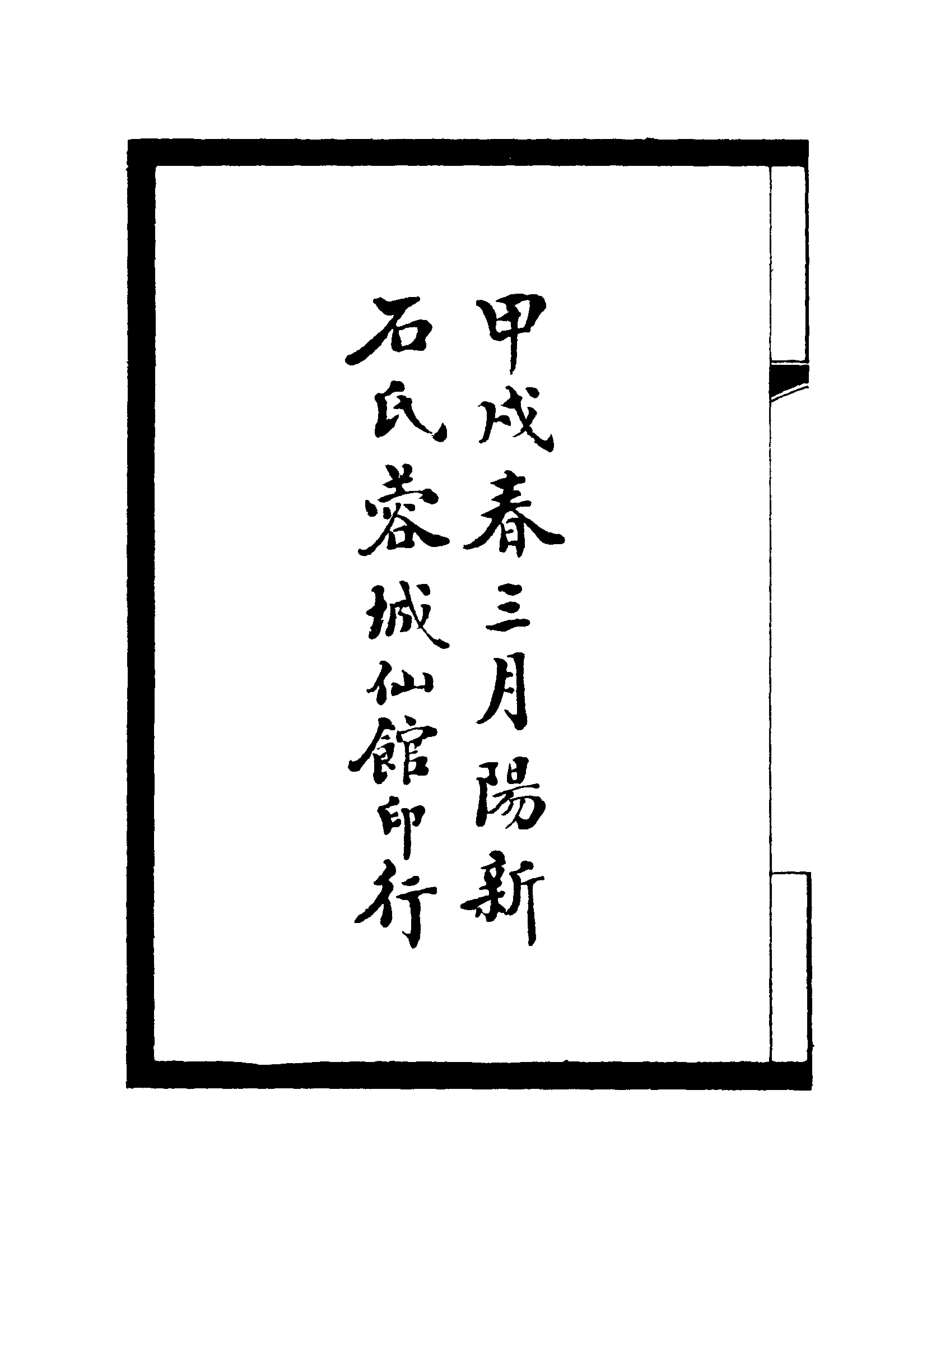 甲戌春三月陽新
石氏蓉城仙館印行